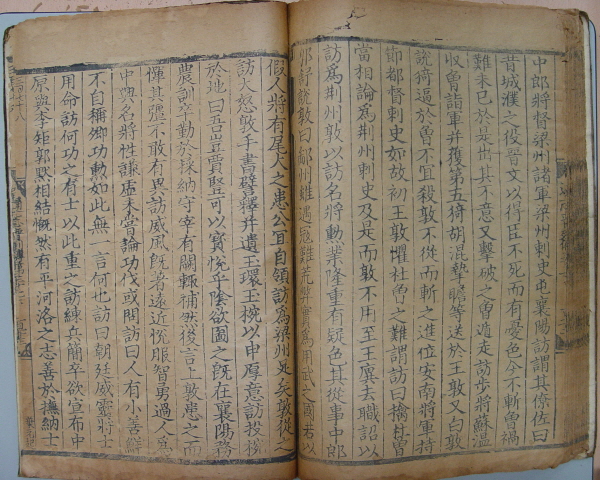 中郎將督梁州諸軍梁州刺史屯襄陽訪謂其僚佐曰
昔城濮之役晉文以得臣不死而有憂色今不斬曾禍
難未已於是出其不意又擊破之曾遁走訪步將蘇溫
收曾詣軍并獲第五猗胡混摯瞻等送於王敦又白敦
說猗逼於曾不宜殺敦不從而斬之進位安南將軍持
節都督刺史如故初王敦懼杜曾之難謂訪曰擒杜曾
當相論為荆州刺史及是而敦不用至王廙去職詔以
訪為荆州敦以訪名將勳業隆重有疑色其從事中郎
郭舒說敦曰鄙州雖遇寇難荒弊實為用武之國若以
假人將有尾大之患公宜自領訪為梁州足矣敦從之
訪大怒敦手書譬釋并遺玉環玉椀以申厚意訪投椀
於地曰吾豈賈豎可以寳悅乎陰欲圖之既在襄陽務
農訓卒勤於採納守宰有闕輒補然後言上敦患之而
憚其彊不敢有異訪威風既著遠近悅服智勇過人為
中興名將性謙虛未嘗論功伐或問訪曰人有小善鮮
不自稱卿功勲如此無一言何也訪曰朝廷威靈將士
用命訪何功之有士以此重之訪練兵簡卒欲宣布中
原與李矩郭默相結慨然有平河洛之志善於撫納士